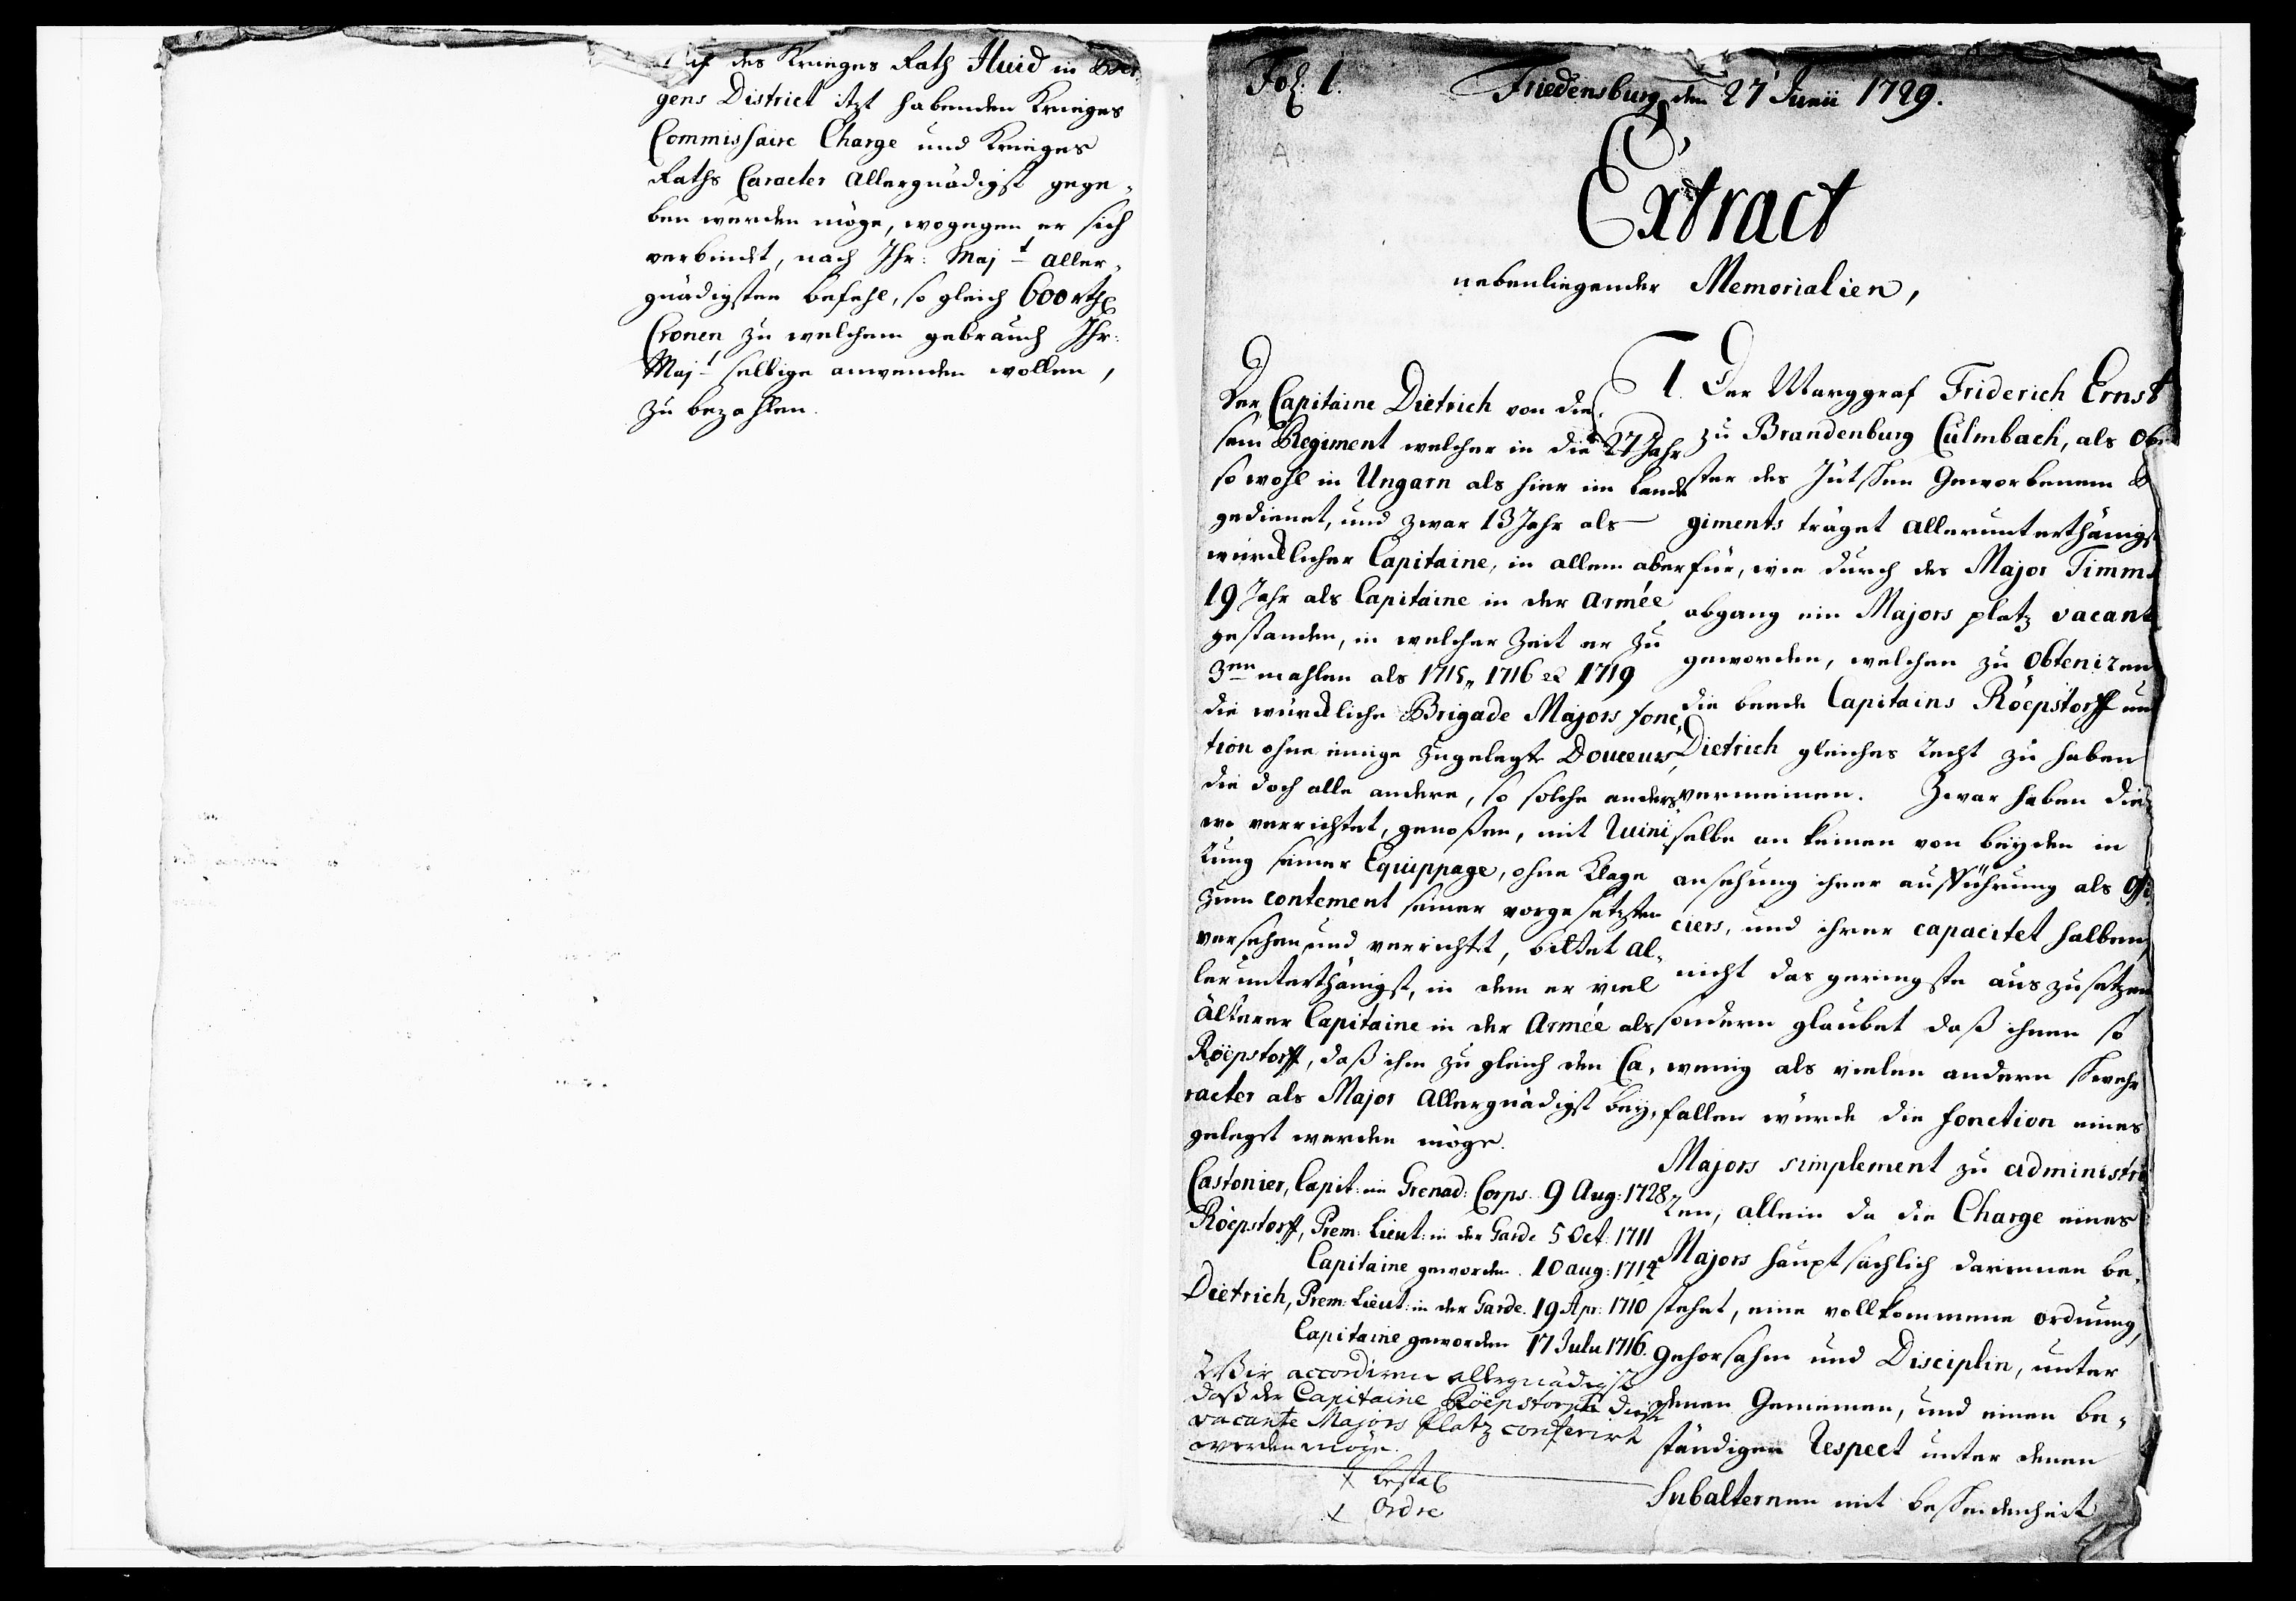 auf des Krieges Rath Huid in Ber
gens District itzt habenden Krieges
Commissaire Charge und Krieges
Raths Caracter Allergnädigst gege,
ben werden möge, wogegen er sich
verbindt, nach Ihr: Majt aller,
gnädigsten befehl, so gleich 600 rthl
Cronen zu welchem gebrauch Ihr:
Majt selbige anwenden wollen,
zu bezahlen.
Fol: 1.
Friedensburg den 27 Junii 1729.
A
Extract
nebenliegender Memorialien,
Der Capitaine Dietrich von die,
sem Regiment welcher in die 27 Jahr
so wohl in Ungarn als hier im Lande
gedienet, und zwar 13 Jahr als
würcklicher Capitaine, in allem aber
19 Jahr als Capitaine in der Armée
gestanden, in welcher Zeit er zu
3en mahlen als 1715, 1716 et 1719
die würckliche Brigade Majors fonc,
tion ohne einige zugelegte Douceurs,
die doch alle andere, so solche anders,
wo verrichtet, genoßen, mit Ruini,
rung seiner Equippage, ohne Klage
zum contement seiner vorgesetzten
versehen und verrichtet, bittet al,
lerunterthänigst, in dem er viel
älterer Capitaine in der Armée als
Röepstorff, daß ihm zu gleich den Ca,
racter als Major Allergnädigst bey,
gelegt werden möge.
Castonier, Capit: im Grenad: Corps. 9 Aug: 1728.
Röepstorff, Prem: Lieut: in der Garde 5 Oct: 1711
Capitaine geworden. 10 aug: 1714
Dietrich, Prem: Lieut: in der Garde. 19 Apr: 1710
Capitaine geworden 17 Julii 1716.
Wir accordiren allergnädigst
daß der Capitaine Röepstorff diese
vacante Majors Platz conferirt
werden möge.
x bestal
x Ordre
1. Der Marggraf Friderich Ernst
zu Brandenburg Culmbach, als Obri
ster des Jütschen Geworbenen Re
giments träget allerunterthänigst
für, wie durch des Major Timms
abgang ein Majors platz vacant
geworden, welchen zu obteniren
die beede Capitains Röepstorff und
Dietrich gleiches Recht zu haben
vermeinen. Zwar haben die,
selbe an keinen von beyden in
ansehung ihrer aufführung als Offi,
ciers, und ihrer capacitet halben,
nicht das geringste auszusetzen
sondern glaubet daß ihnen so
wenig als vielen andern schwehr
fallen würde die fonction eines
Majors simplement zu administri
ren, allein da die Charge eines
Majors hauptsächlich darinnen be,
stehet, eine vollkommene ordnung,
gehorsahm und Disciplin, unter
denen Gemeinen, und einen be,
ständigen Respect unter denen
Subalternen mit bescheidenheit